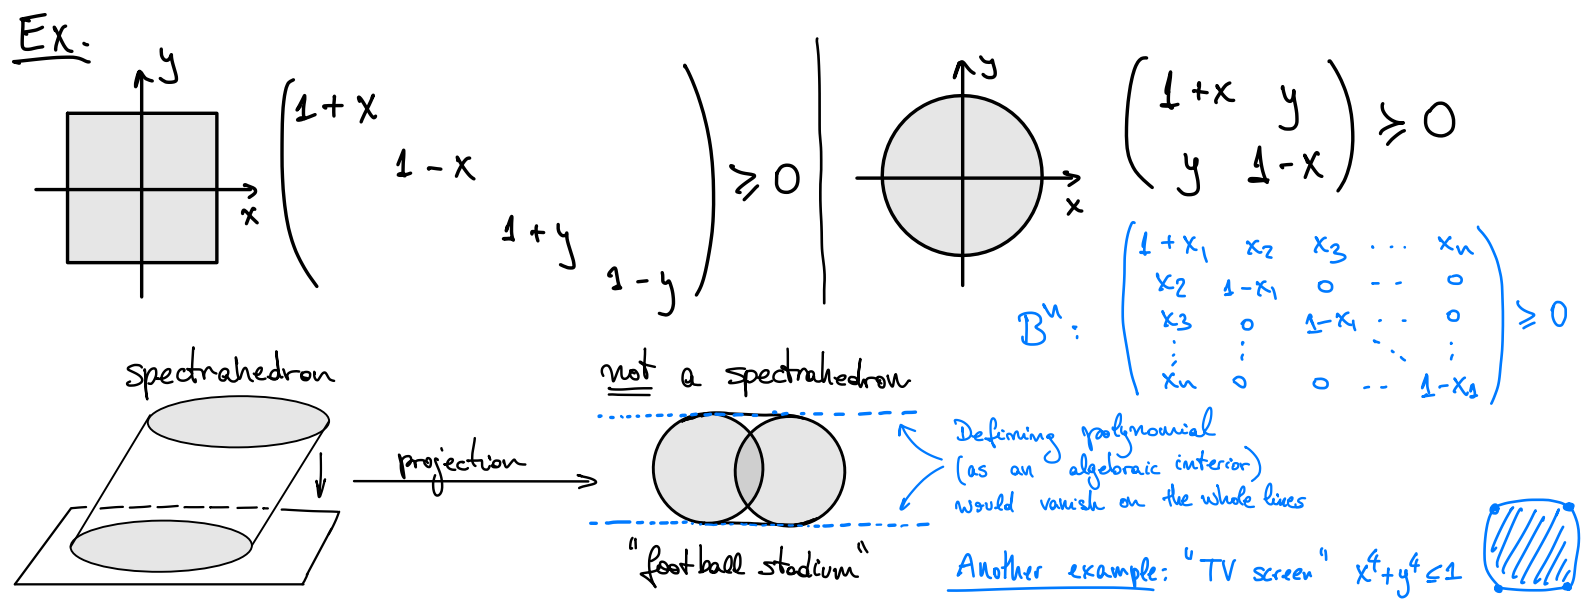 Ex.
y
x
( 1+x
1-x
1+y
1-y ) ⩾ 0
y
x
( 1+x y
y 1-x ) ⩾ 0
Bⁿ: ( 1+x₁ x₂ x₃ ... xₙ
x₂ 1-x₁ 0 -- 0
x₃ 0 1-x₁ .. 0
⋮ ⋮ ⋱ ⋮
xₙ 0 0 -- 1-x₁ ) ⩾ 0
spectrahedron
projection
not a spectrahedron
"football stadium"
Defining polynomial
(as an algebraic interior)
would vanish on the whole lines
Another example: "TV screen" x⁴+y⁴≤1